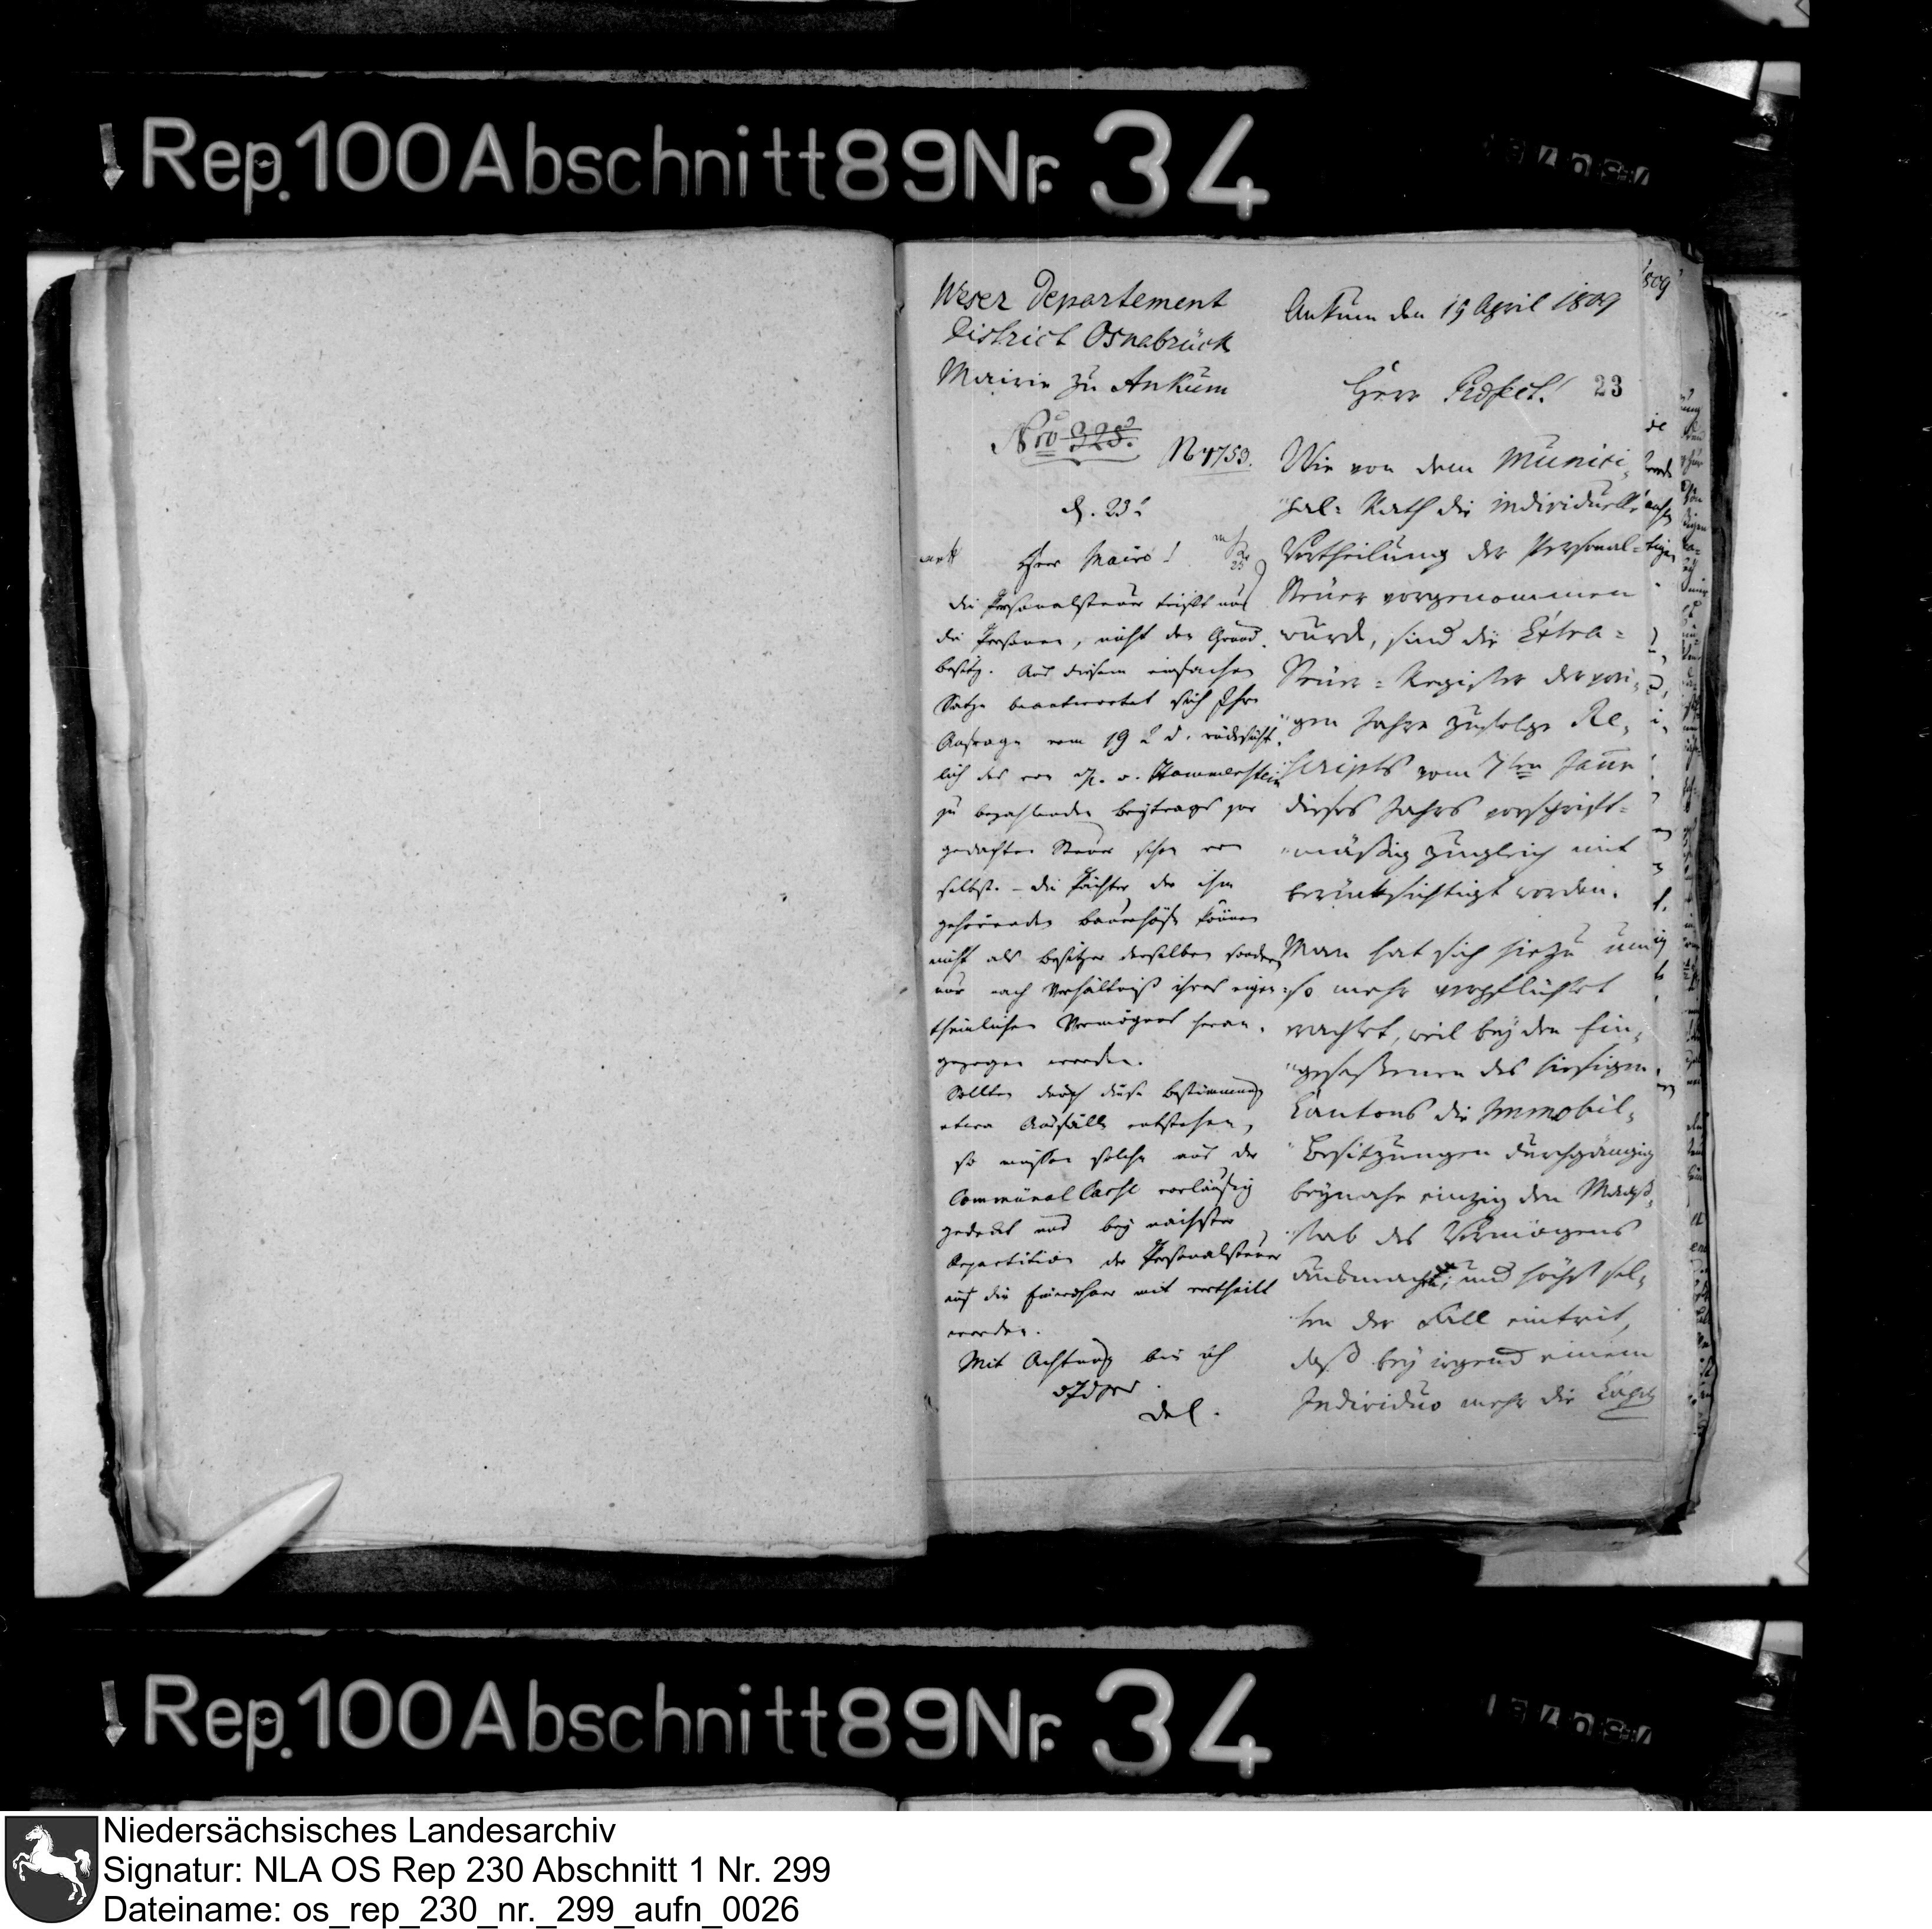 Rep. 100 Abschnitt 89 Nr. 34
Weser Departement
District Osnabrück
Mairie zu Ankum
Nro 325.
N 4753.
d. 23
Herr Maire!
die Personalsteuer trifft nur
die Personen, nicht den Grund-
besitz. Aus diesem einfachen
Satze beantwortet sich Ihre
Anfrage vom 19 d. rücksicht-
lich des von v. Hammerstein
zu bezahlenden Beytrags zur
gedachten Steuer schon von
selbst. – die Pächter der ihm
gehörenden Bauerhöfe können
nicht als Besitzer derselben sondern
nur nach Verhältniß ihres eigen-
thümlichen Vermögens heran-
gezogen werden.
Sollten durch diese Bestimmung
etwa Ausfälle entstehen,
so müssen solche aus der
Communal Casse vorläufig
gedeckt und bey nächster
Repartition der Personalsteuer
auf die Einwohner mit vertheilt
werden.
Mit Achtung bin ich
del.
Ankum den 19 April 1809
Herr Präfect!
23
Wie von dem Munici-
pal-Rath die individuelle
Vertheilung der Personal-
Steuer vorgenommen
wurde, sind die Extra-
Steuer-Register der vori-
gen Jahre zufolge Re-
scripts vom 7ten Janr
dieses Jahrs vorschrift-
mäßig zugleich mit
berücksichtigt worden.
Man hat sich hiezu um
so mehr verpflichtet
erachtet, weil bey den Ein-
gesessenen des hiesigen
Cantons die Immobil-
Besitzungen durchgängig
beynahe einzig den Maaß-
stab des Vermögens
ausmacht, und höchst sel-
ten der Fall eintrit,
daß bey irgend einem
Individuo mehr die
1809
Rep. 100 Abschnitt 89 Nr. 34
Niedersächsisches Landesarchiv
Signatur: NLA OS Rep 230 Abschnitt 1 Nr. 299
Dateiname: os_rep_230_nr._299_aufn_0026